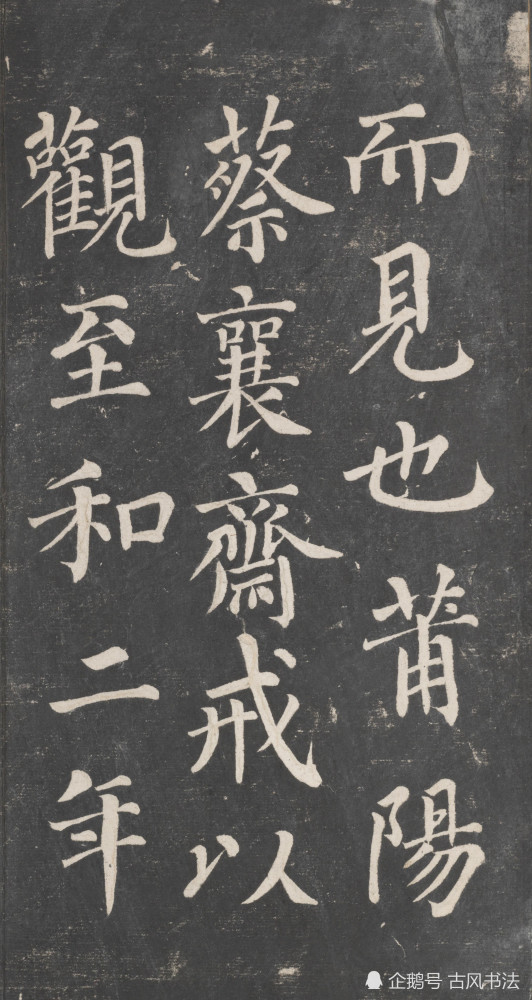 而見也莆陽
蔡襄齋戒以
觀至和二年
企鹅号 古风书法